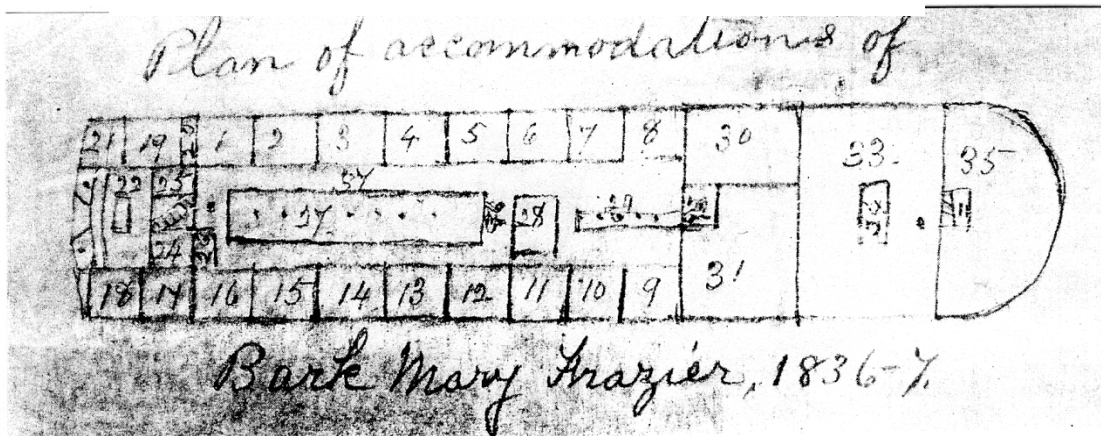 Plan of accommodations of
21 19 1 2 3 4 5 6 7 8 30 33. 35
22 25 37
27. 28
24
18 17 16 15 14 13 12 11 10 9 31
Bark Mary Frazier, 1836-7.